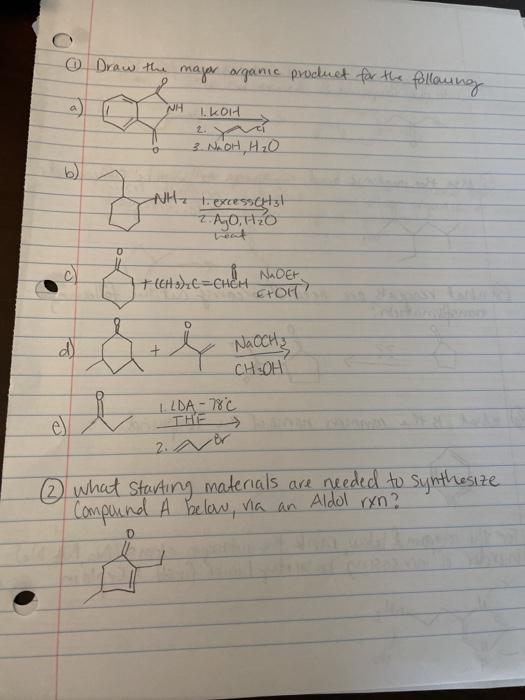 ① Draw the major organic product for the following
a) O NH O 1. KOH
2. Cl
3. NaOH, H2O
b) NH2 1. excess CH3I
2. AgO, H2O
heat
c) O + (CH3)2C=CHCH O NaOEt
EtOH ?
d) O + O NaOCH3
CH3OH
e) O 1. LDA -78°C
THF
2. Br
② What starting materials are needed to synthesize
Compound A below, via an Aldol rxn?
O